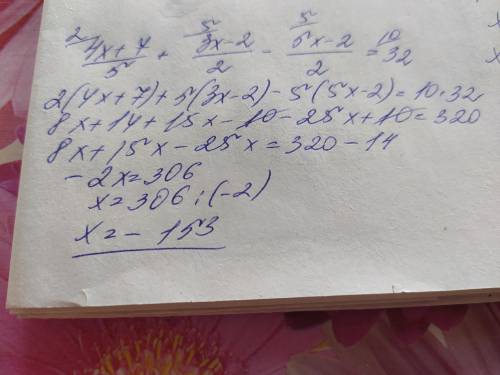 2 5 5 10
(4x+7)/5 + (3x-2)/2 - (5x-2)/2 = 32
2(4x+7)+5(3x-2)-5(5x-2)=10·32
8x+14+15x-10-25x+10=320
8x+15x-25x=320-14
-2x=306
x=306:(-2)
x=-153